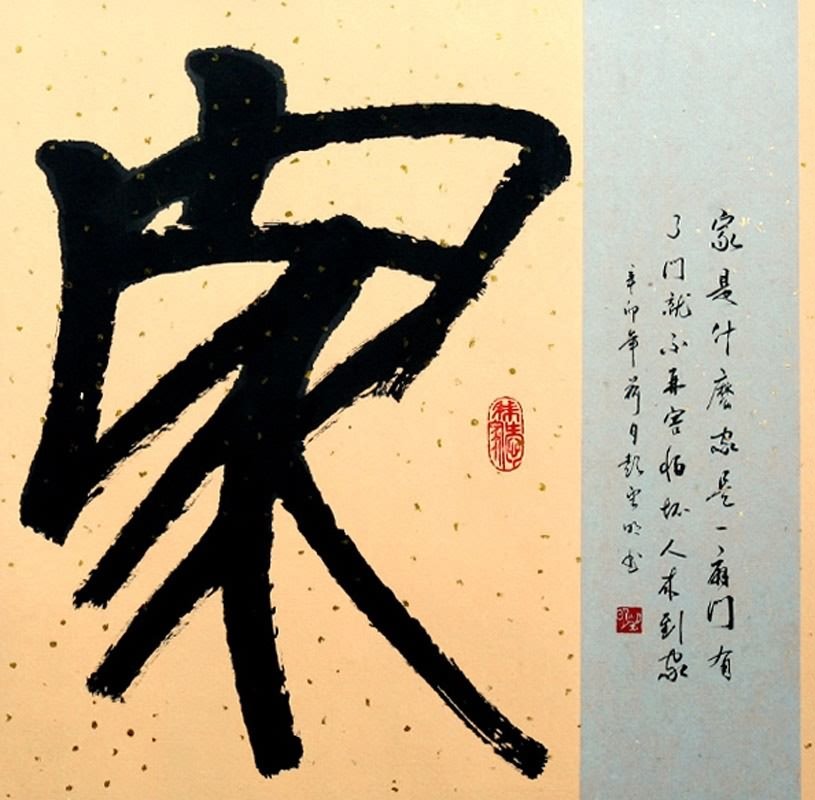 家
家是什麽家是一扇门有
了门就不再害怕坏人来到家
辛卯年荷月彭明书